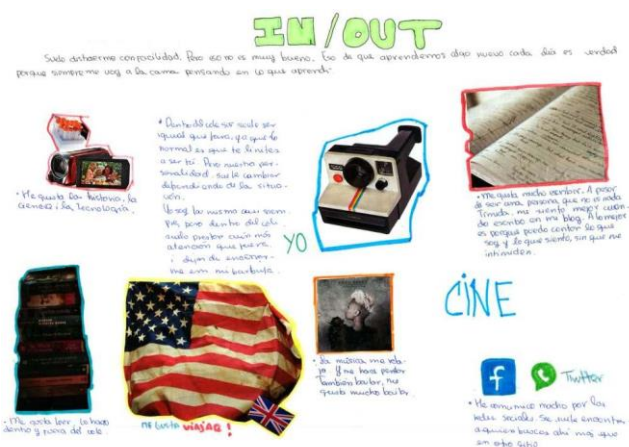 IN / OUT
Suelo distraerme con facilidad. Pero eso no es muy bueno. Eso de que aprendemos algo nuevo cada día es verdad
porque siempre me voy a la cama pensando en lo que aprendí.
• Me gusta la historia, la
ciencia i la tecnología.
• Dentro del cole ser suele ser
igual que fuera, ya que lo
normal es que te limites
a ser tú. Pero nuestra per-
sonalidad suele cambiar
dependiendo de la situa-
ción.
Yo soy la misma casi siem-
pre, pero dentro del cole
suelo prestar aún más
atención que fuera.
YO
• Me gusta mucho escribir. A pesar
de ser una persona que no es nada
Tímida, me siento mejor cuan-
do escribo en mi blog. A lo mejor
es porque puedo contar lo que
soy y lo que siento, sin que me
intimiden.
CINE
• Me gusta leer. Lo hago
dentro y fuera del cole.
ME GUSTA VIAJAR!
• La música me rela-
ja y me hace pensar
También bailar, me
gusta mucho bailar.
f
Twitter
• Me comunico mucho por las
redes sociales. Se suele encontrar
a quien buscas ahí más que
en otro sitio.